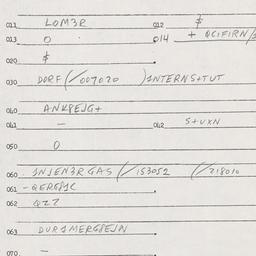 011 LOM3R 012 $
013 0 014 + QCIFIRN/
020 $
030 DORF (/007020 )INTERNS+TUT
040 ANKPEJG+
041 - 042 S+UXN
050 0
060 INJEN3RGAS (/153052 (/218010
061 -QERGP1C
062 QZZ
063 DUR1MERGPEJN
070 -